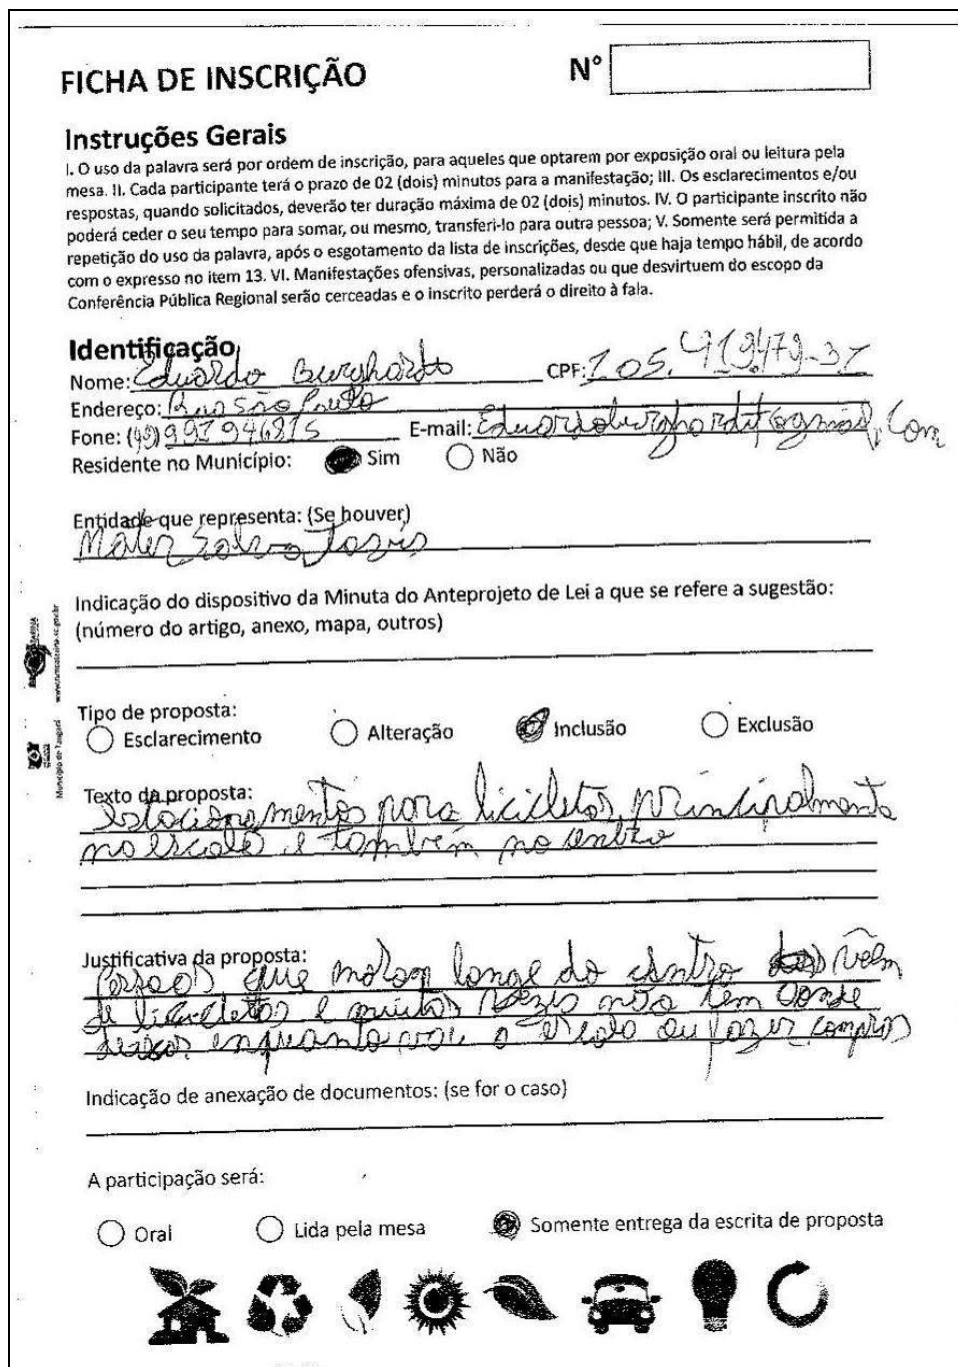 FICHA DE INSCRIÇÃO
N°
Instruções Gerais
I. O uso da palavra será por ordem de inscrição, para aqueles que optarem por exposição oral ou leitura pela
mesa. II. Cada participante terá o prazo de 02 (dois) minutos para a manifestação; III. Os esclarecimentos e/ou
respostas, quando solicitados, deverão ter duração máxima de 02 (dois) minutos. IV. O participante inscrito não
poderá ceder o seu tempo para somar, ou mesmo, transferi-lo para outra pessoa; V. Somente será permitida a
repetição do uso da palavra, após o esgotamento da lista de inscrições, desde que haja tempo hábil, de acordo
com o expresso no item 13. VI. Manifestações ofensivas, personalizadas ou que desvirtuem do escopo da
Conferência Pública Regional serão cerceadas e o inscrito perderá o direito à fala.
Identificação
Nome: Eduardo Burghardt CPF: 105.419.479-37
Endereço: Rua São
Fone: (49) 991946815 E-mail: Eduardoburghardt@gmail.com
Residente no Município: Sim Não
Entidade que representa: (Se houver)
Mater
Indicação do dispositivo da Minuta do Anteprojeto de Lei a que se refere a sugestão:
(número do artigo, anexo, mapa, outros)
Tipo de proposta:
Esclarecimento Alteração Inclusão Exclusão
Texto da proposta:
Estacionamentos para bicicletas, principalmente
na escola e também no centro
Justificativa da proposta:
Pessoas que moram longe do centro vêem
de bicicletas e muitas vezes não tem onde
deixar enquanto vai a escola ou fazer compras
Indicação de anexação de documentos: (se for o caso)
A participação será:
Oral Lida pela mesa Somente entrega da escrita de proposta